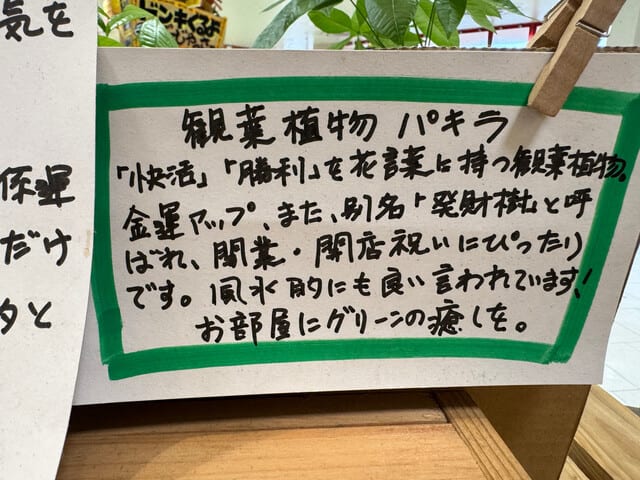 気を
係運
だけ
タと
観葉植物 パキラ
「快活」「勝利」を花言葉に持つ観葉植物。
金運アップ、また、別名「発財樹」と呼
ばれ、開業・開店祝いにぴったり
です。風水的にも良い言われています!
お部屋にグリーンの癒しを。